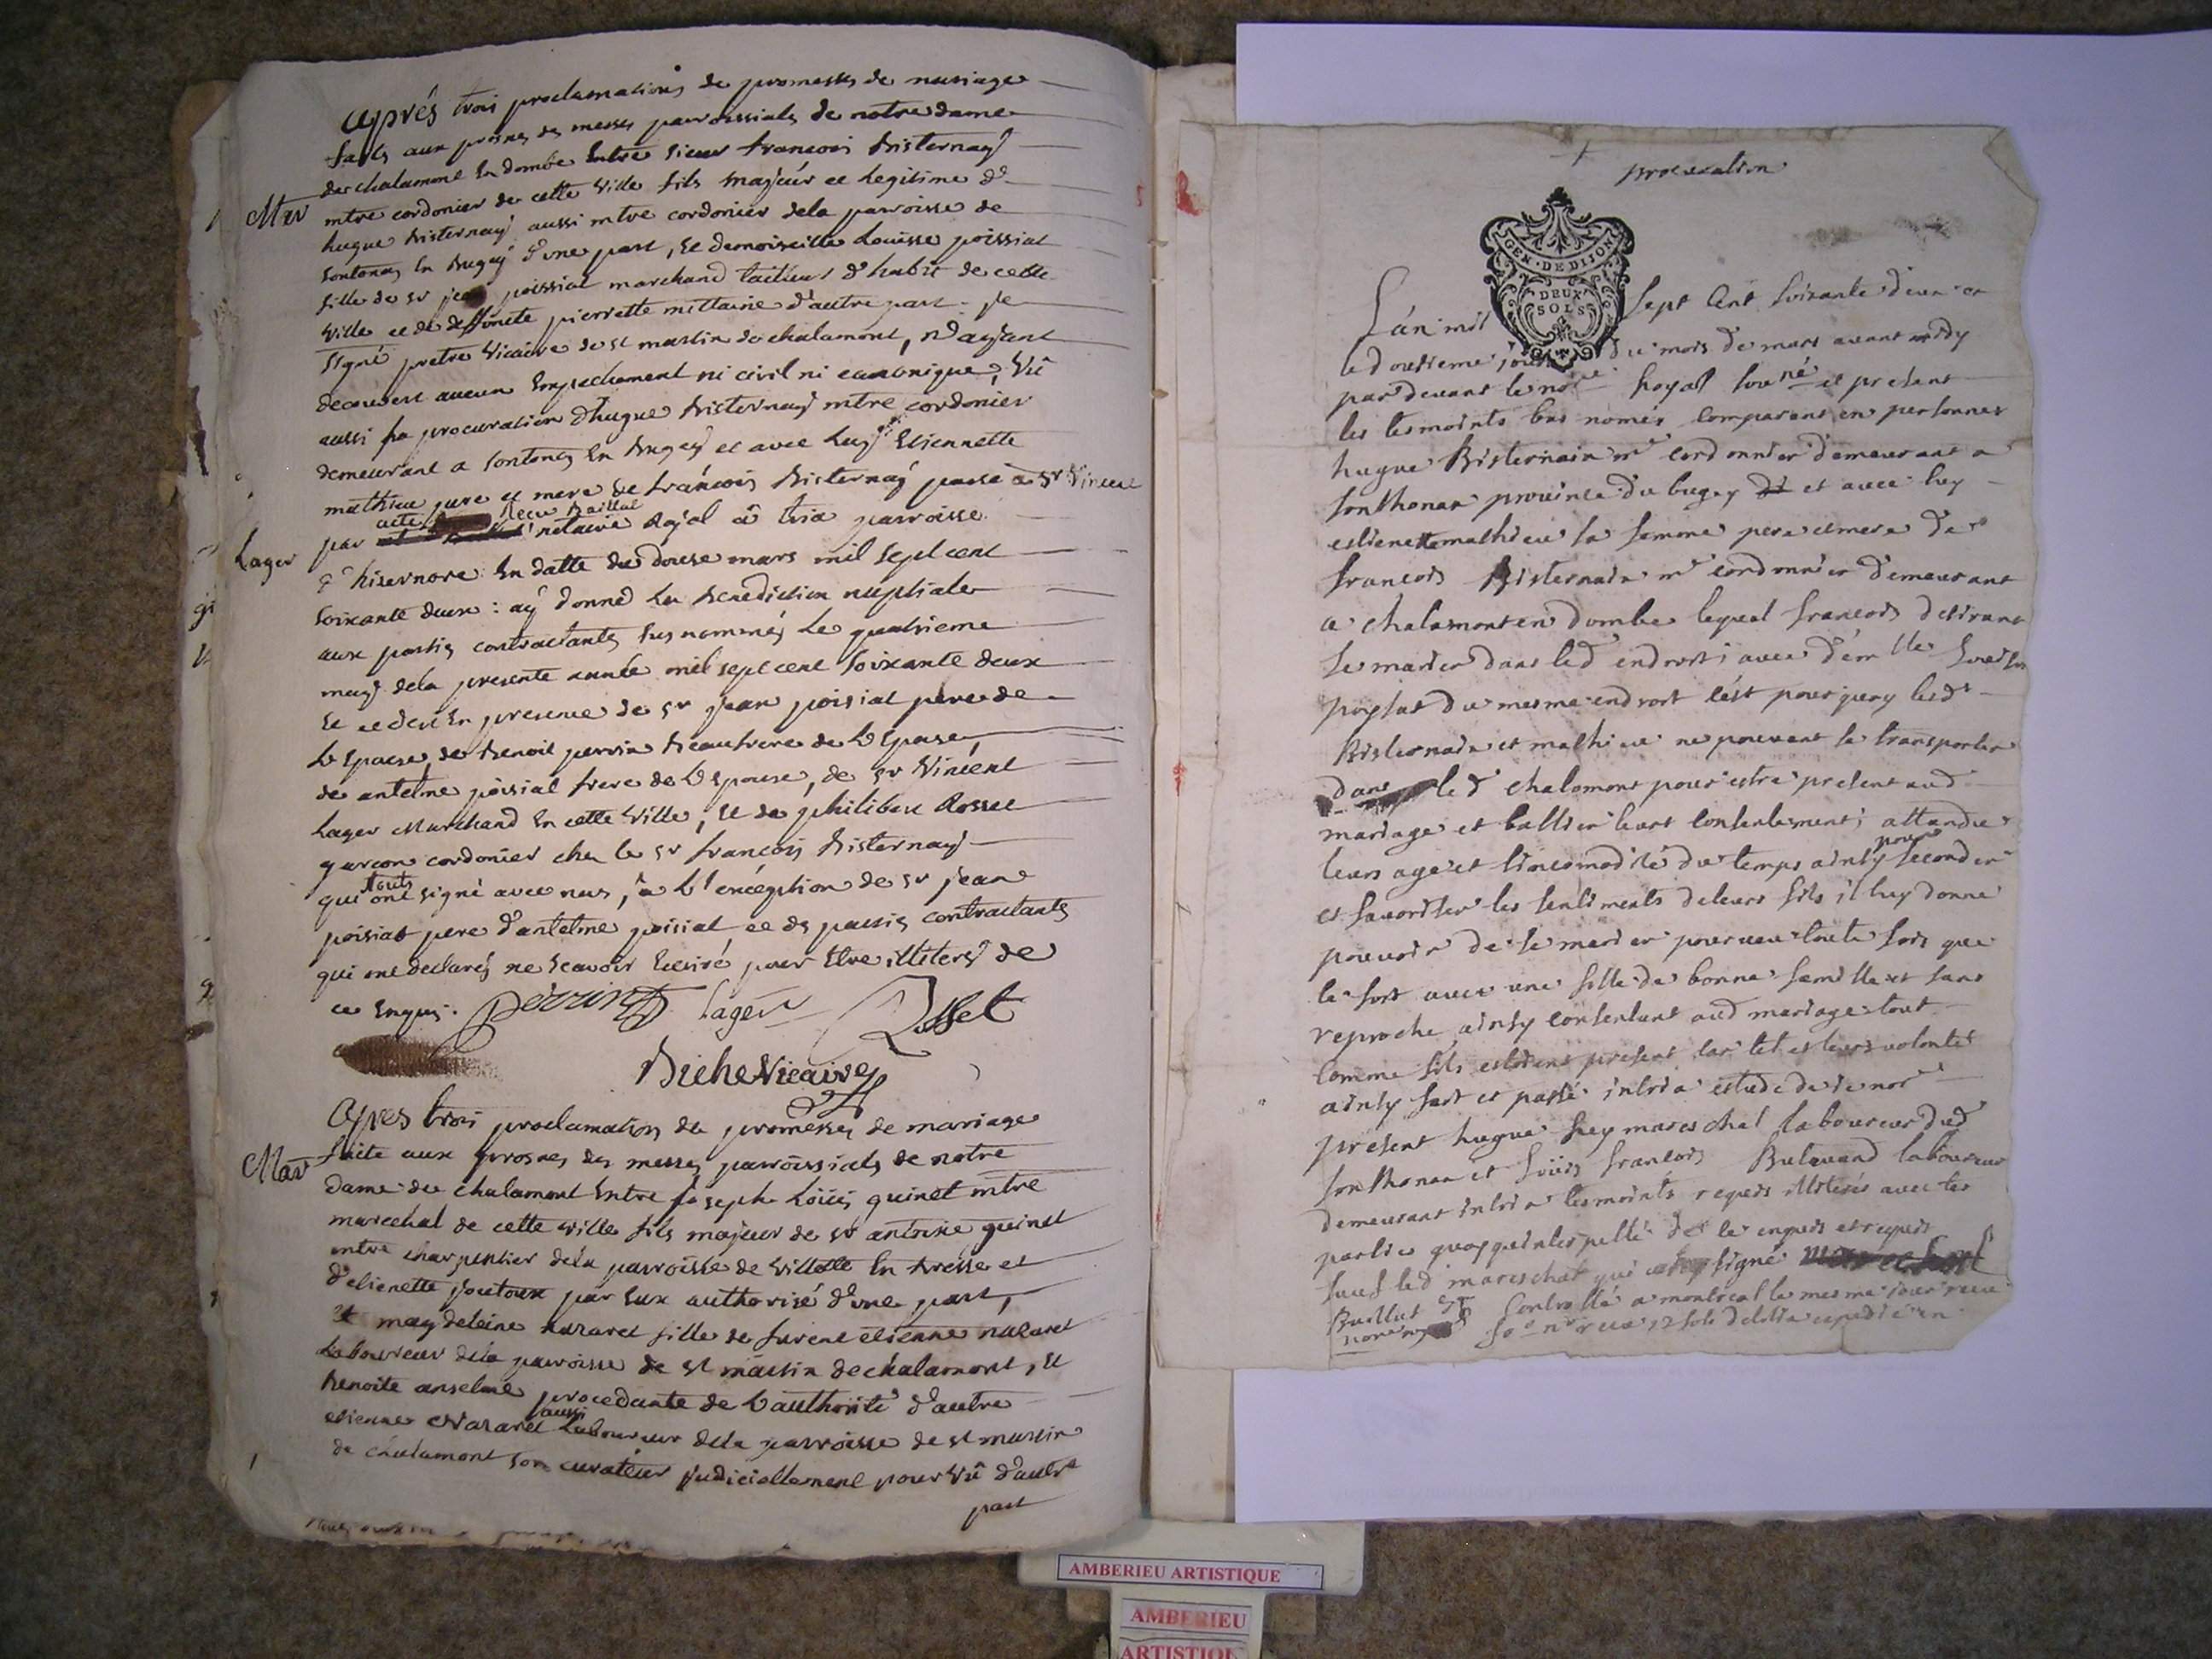 Après trois proclamations de promesses de mariage
faites aux prosnes des messes parroissiales de notre dame
de chalamont En dombe Entre sieur francois Bisternay
Mar
mtre cordonier de cette Ville fils majeur et legitime d'
hugue Bisternay aussi mtre cordonier dela parroisse de
sontonas En Bugey d'une part, Et demoiselle Louisse poissiat
fille de sr jean poissiat marchand tailleur d'habit de cette
Ville et de deffuncte pierrette millaine d'autre part. je
signé pretre Vicaire de st martin de chalamont, n'ayant
decouvert aucun Empechement ni civil ni canonique, Vû
aussi la procuration d'hugue Bisternay mtre cordonier
demeurant a sontonas En Bugey et avec Luy Etiennette
mathieu pere et mere de francois Bisternay passé à sr Vincent
acte Recu Baillat
Lager
par notaire Royal â tria parroisse
d'hisernore En datte du douse mars mil sept cent
soixante deux : ay donné La Benediction nuptiale
aux partis contractants sus nommés Le quatrieme
may dela presente année mil sept cent soixante deux
Et ce deu En presence de sr jean poisiat pere de
L'Epouse, de Benoit perrin Beaufrere de L'Epouse,
de antelme poisiat frere de L'Epouse, de sr Vincent
Lager Marchand En cette Ville, Et de philibert Rosset
garcon cordonier che le sr francois Bisternay
touts
qui ont signé avec nous, à L'exception de sr jean
poisiat pere d'antelme poisiat et des partis contractants
qui ont declarés ne scavoir Ecrire pour Etre illiterés de
ce Enquis. perrin Lager Rosset
Biche Vicaire
Après trois proclamations de promesses de mariage
Mar
faite aux prosnes des messes parroissiales de notre
dame de chalamont Entre joseph Loüis guinet mtre
marechal de cette ville fils majeur de sr antoine guinet
mtre charpentier dela parroisse de Villette En Bresse et
d'etienette joutoux par Eux authorisé d'une part,
Et magdeleine nazaret fille de furent etienne nazaret
Laboureur dela parroisse de st martin de chalamont, Et
Benoite anselme procedante de L'authorité d'autre
aussi
etienne Nazaret Laboureur dela parroisse de st martin
de chalamont son curateur judiciellement pourvû d'autre
part
procuration
GEN · DE DIJON
DEUX
SOLS
L'an mil sept cent soixante deux et
le douzieme jour du mois de mars avant midy
pardevant le nore Royal sousné et present
les tesmoints bas només comparent en personnes
hugue Bisternain mr cordonnier demeurant a
sonthonax province du bugey et avec luy
estienette mathieu sa femme pere et mere de
francois Bisternain mr cordonnier demeurant
a chalamont en dombe lequel francois desirant
se marier dans led endroit avec demlle Louise
poysat du mesme endroit c'est pourquoy lesd
Bisternain et mathieu ne pouvant se transporter
dans led chalamont pour estre present aud
mariage et ballier leurt consentement, attandu
pour
leurs age et l'incomodité du temps ainsy seconder
et favoriser les sentiments de leurs fils il luy donne
pouvoir de se marier pourveu toute fois que
le soit avec une fille de bonne famille et sans
reproche, ainsy consentant aud mariage tout
comme s'ils estoient present car tel est leurs volontés
ainsy fait et passé intria estude de ie nore
present hugue hey mareschal laboureur dud
sonthonax et Loüis francois Buland laboureur
demeurant intria tesmoints requis illiterés avec les
partie quoy qu'interpellé de le enquis et requis
sauf led mareschal qui a signé
Baillat controllé a montreal le mesme jour receu
nore royal receu 12 sols
AMBERIEU ARTISTIQUE
AMBERIEU
ARTISTIQUE